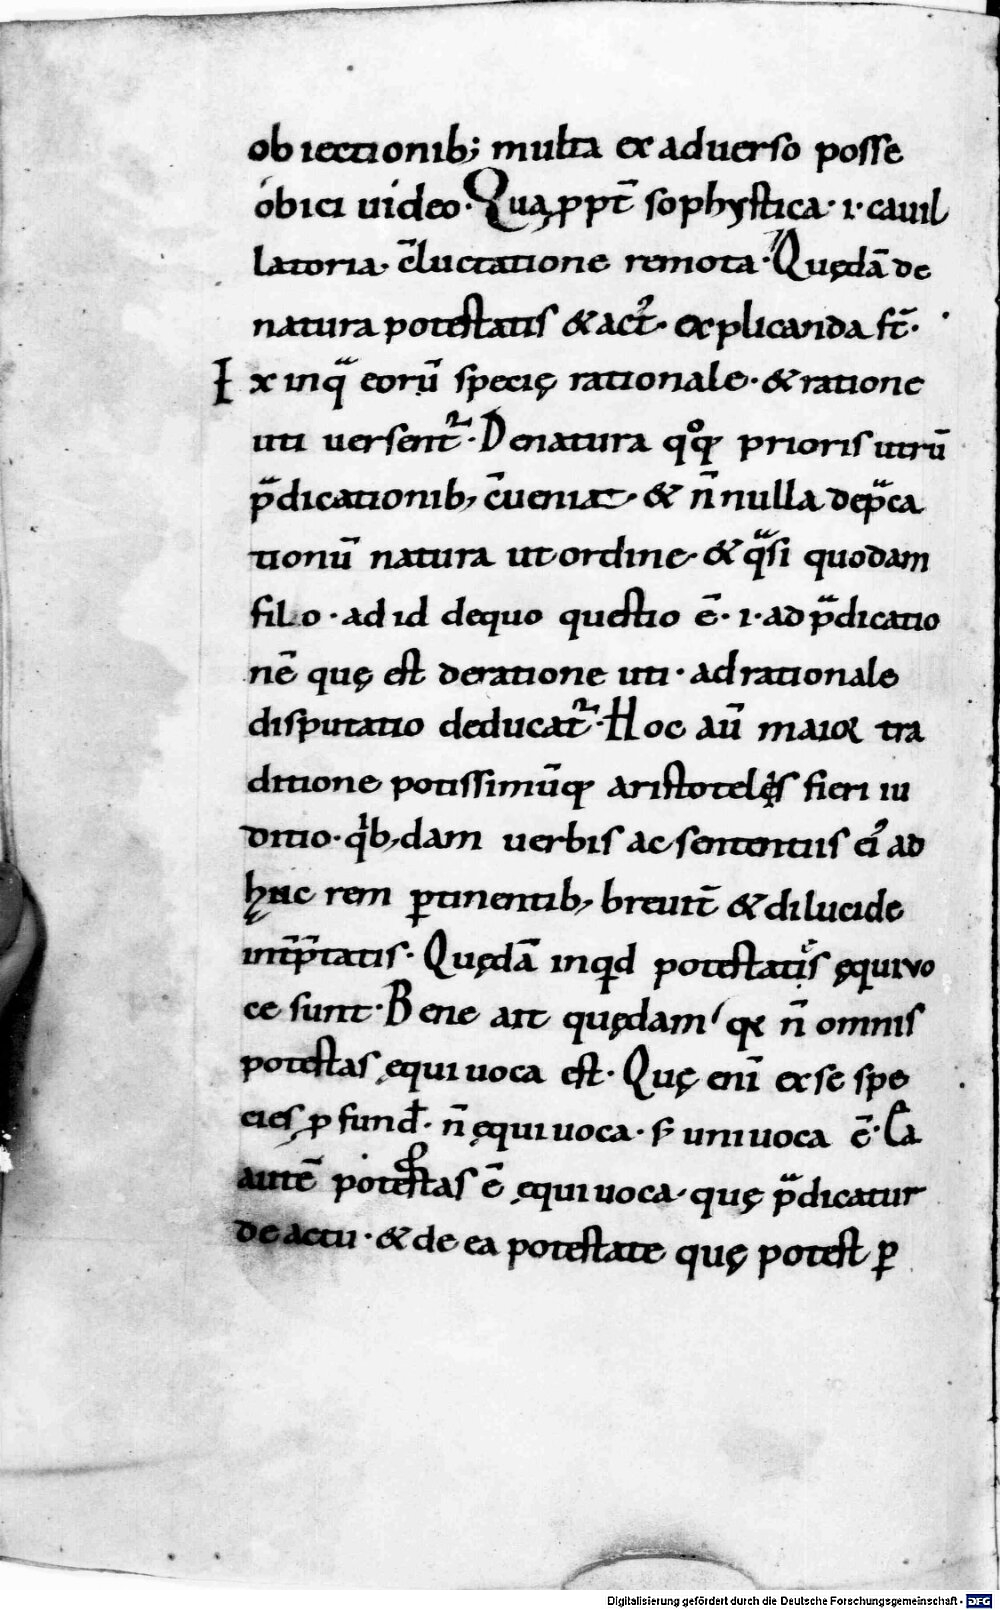 obiectionib; multa ex aduerso posse
obici uideo. Quapppt̄ sophystica. i. cauil
latoria. c̄luctatione remota. Quędā de
natura potestatis & act᷑. explicanda st̄.
Ix inq̄ eorū specię rationale. & ratione
uti uersent᷑. De natura qͦq prioris utrū
p̄dicationib, c̄ueniat, & n̄ nulla dep̄ca
tionū natura ut ordine. & q̄si quodam
filo. ad id dequo questio ē. i. ad p̄dicatio
nē quę est deratione uti. ad rationale
disputatio deducat᷑. Hoc aū maior tra
ditione potissimūq; aristotelis fieri iu
ditio. qib, dam uerbis ac sententiis ei᷒ ad
hanc rem ꝑtinentib, breuit̄ & dilucide
int̄p̄tatis. Quędā inqd potestatis ęquiuo
ce sunt. Bene ait quędam qꝛ n̄ omnis
potestas ęquiuoca est. Quę enī exse spe
cies ꝓfund. n̄ ęquiuoca. s; uniuoca ē. Ea
autē potestas ē ęquiuoca. quę p̄dicatur
de actu. & de ea potestate quę potest ꝑ
Digitalisierung gefördert durch die Deutsche Forschungsgemeinschaft - DFG